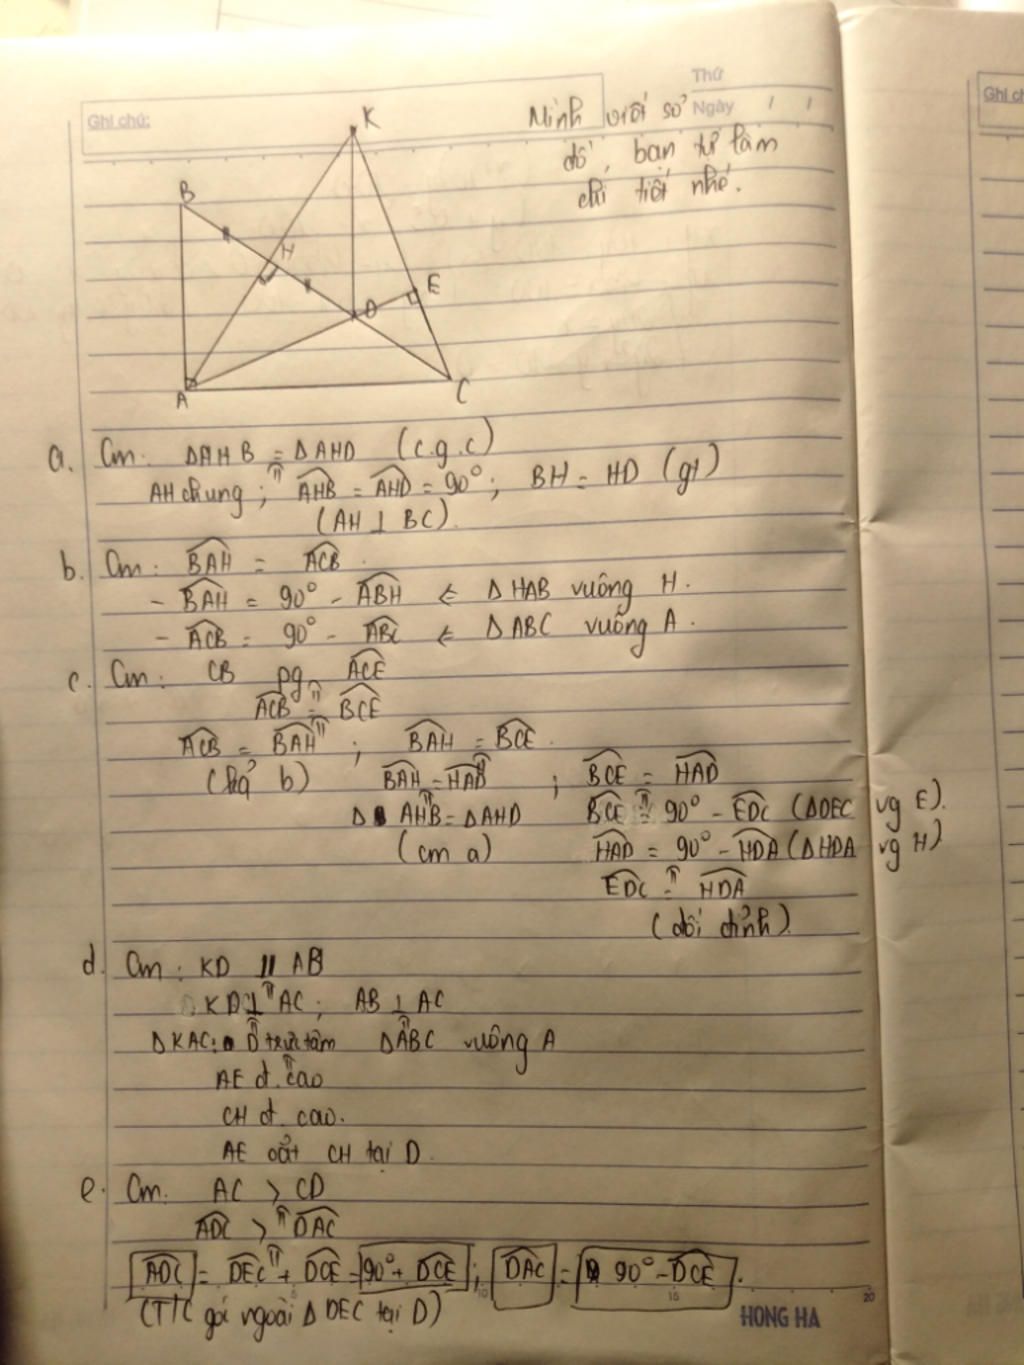 Thứ
Ghi chú:
Ngày / /
Ghi ch
Mình viết sơ
đồ, bạn tự làm
chi tiết nhé.
K
B
H
E
D
A
C
a. Cm: ΔAHB = ΔAHD (c.g.c)
AH chung ; AHB = AHD = 90° ; BH = HD (gt)
(AH ⊥ BC).
b. Cm: BAH = ACB.
- BAH = 90° - ABH ⇐ Δ HAB vuông H.
- ACB = 90° - ABC ⇐ Δ ABC vuông A.
c. Cm: CB pg ACE
ACB = BCE
ACB = BAH ; BAH = BCE.
(kq b) BAH = HAD ; BCE = HAD
Δ AHB = ΔAHD BCE = 90° - EDC (ΔDEC vg E).
(cm a) HAD = 90° - HDA (ΔHDA vg H)
EDC = HDA
(đối đỉnh).
d. Cm: KD // AB
KD ⊥ AC ; AB ⊥ AC
ΔKAC: D trực tâm ΔABC vuông A
AE đ. cao
CH đ. cao.
AE cắt CH tại D.
e. Cm: AC > CD
ADC > DAC
ADC = DEC + DCE = 90° + DCE ; DAC = 90° - DCE.
(T/C góc ngoài Δ DEC tại D)
5 10 15 20
HONG HA